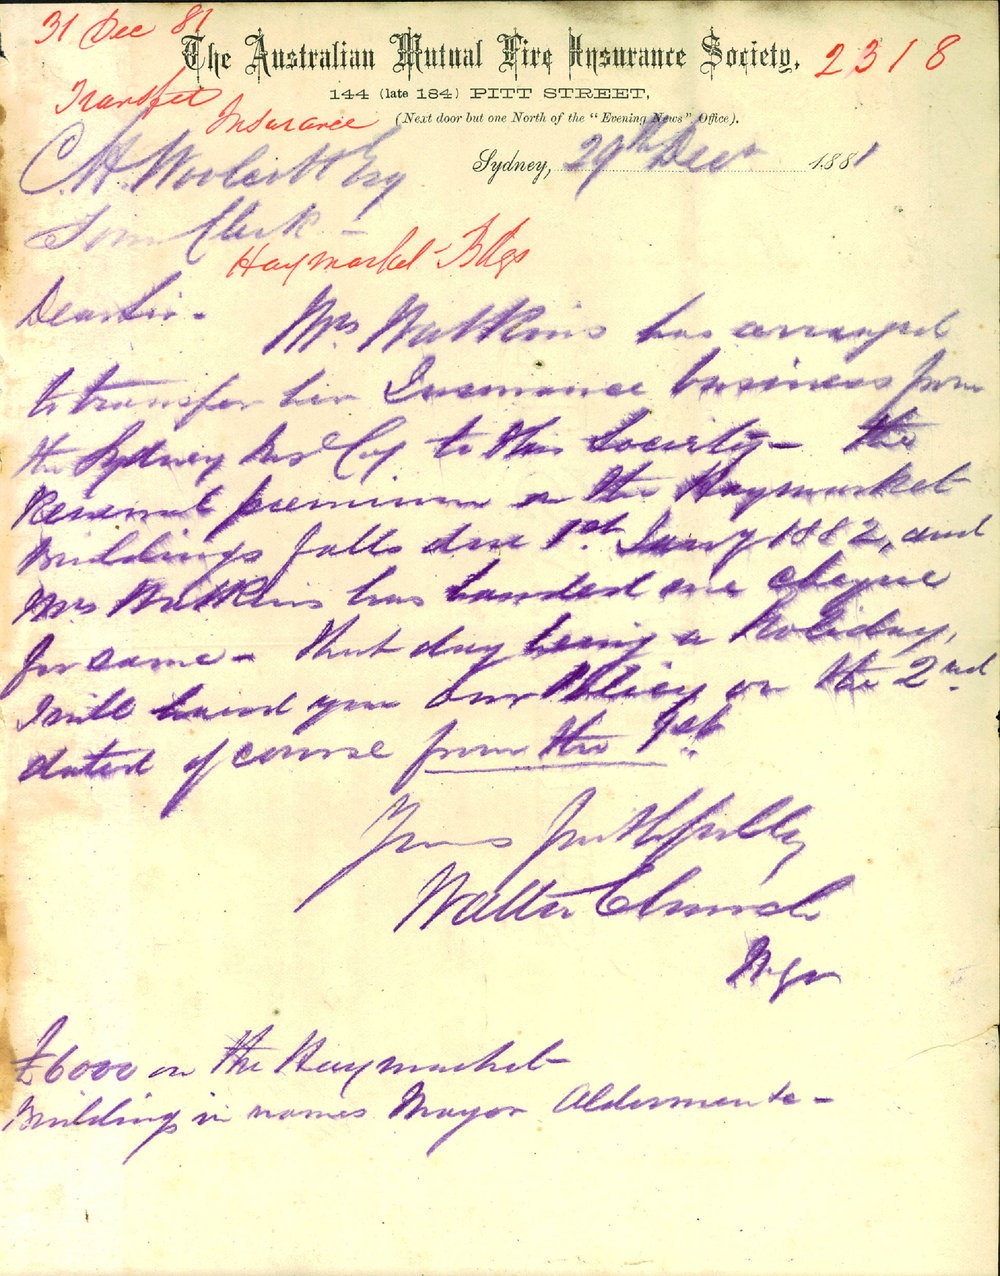 31 Dec 81
The Australian Mutual Fire Insurance Society,
2318
144 (late 184) PITT STREET,
Transfer
Insurance
(Next door but one North of the "Evening News" Office).
Sydney, 29th Decr 1881
C. H. Woolcott Esq
Town Clerk –
Haymarket Bdgs
Dear Sir –
Mrs Watkins has arranged
to transfer her Insurance business from
the Sydney Insce Coy to this Society – the
Renewal premium on the Haymarket
Buildings falls due 1st Jany 1882, and
Mrs Watkins has handed me cheque
for same – that day being a holiday,
I will hand you our Policy on the 2nd
dated of course from the 1st
Yours faithfully
Walter Church
Mgr
£6000 on the Haymarket
Building in names Mayor Aldermen &c –